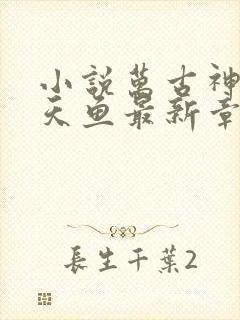 小說萬古神
天魚最新章
長生千葉2